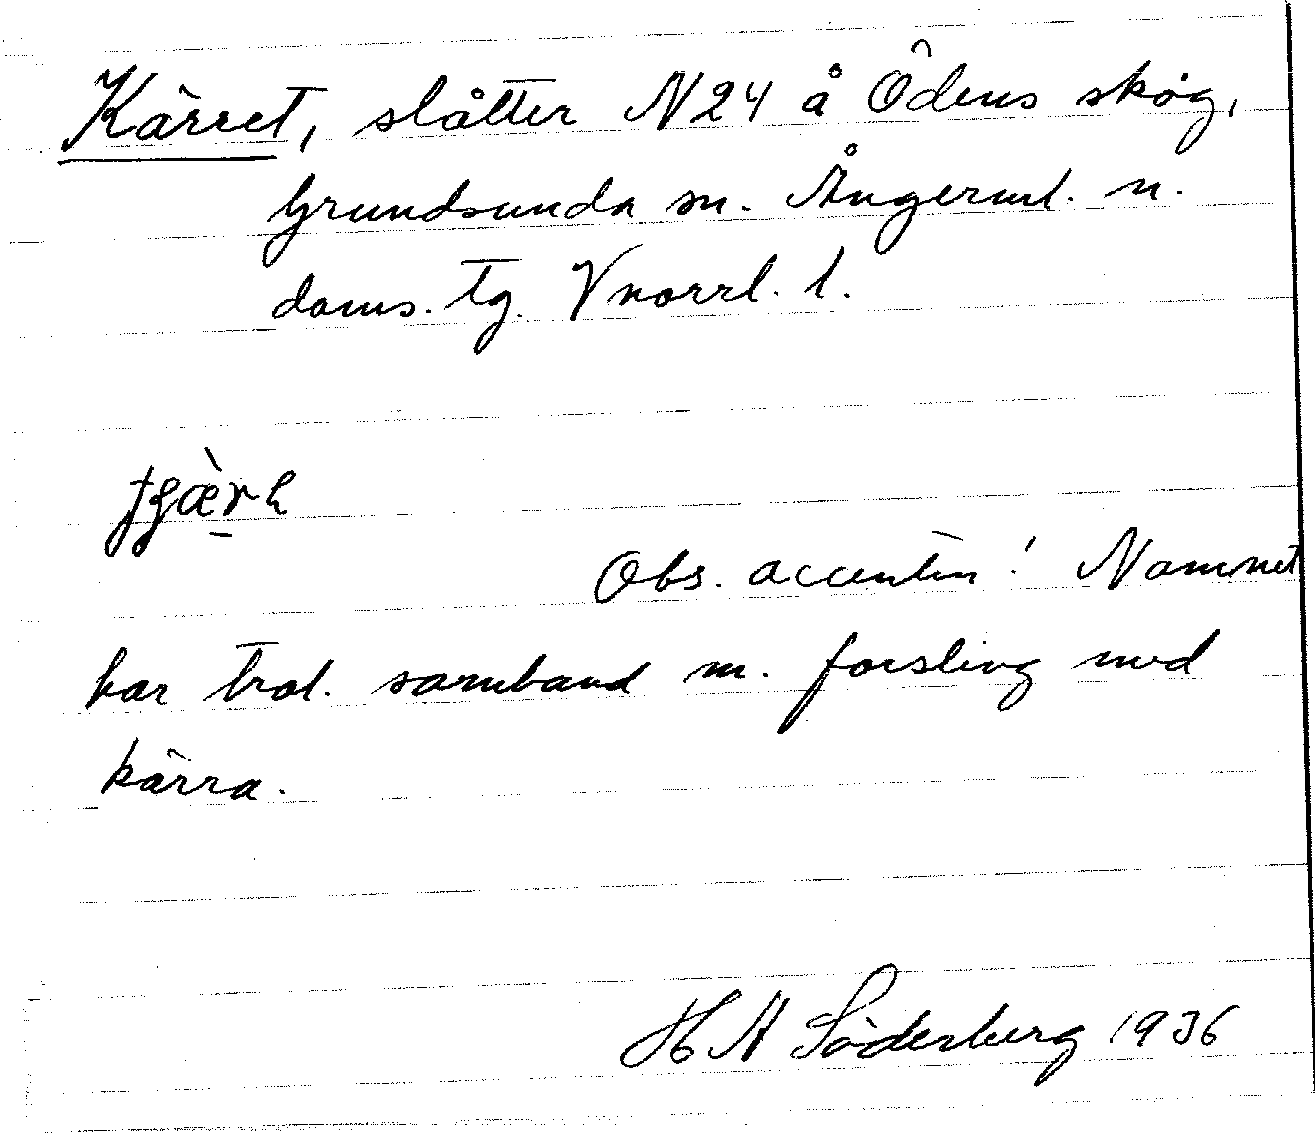 Kärret, slåtter N24 å Ödens skog,
Grundsunda sn. Ångerml. n.
doms. tg. Vnorrl. l.
Obs. accenten! Namnet
har trol. samband m. forsling med
kärra.
H A Söderberg 1936